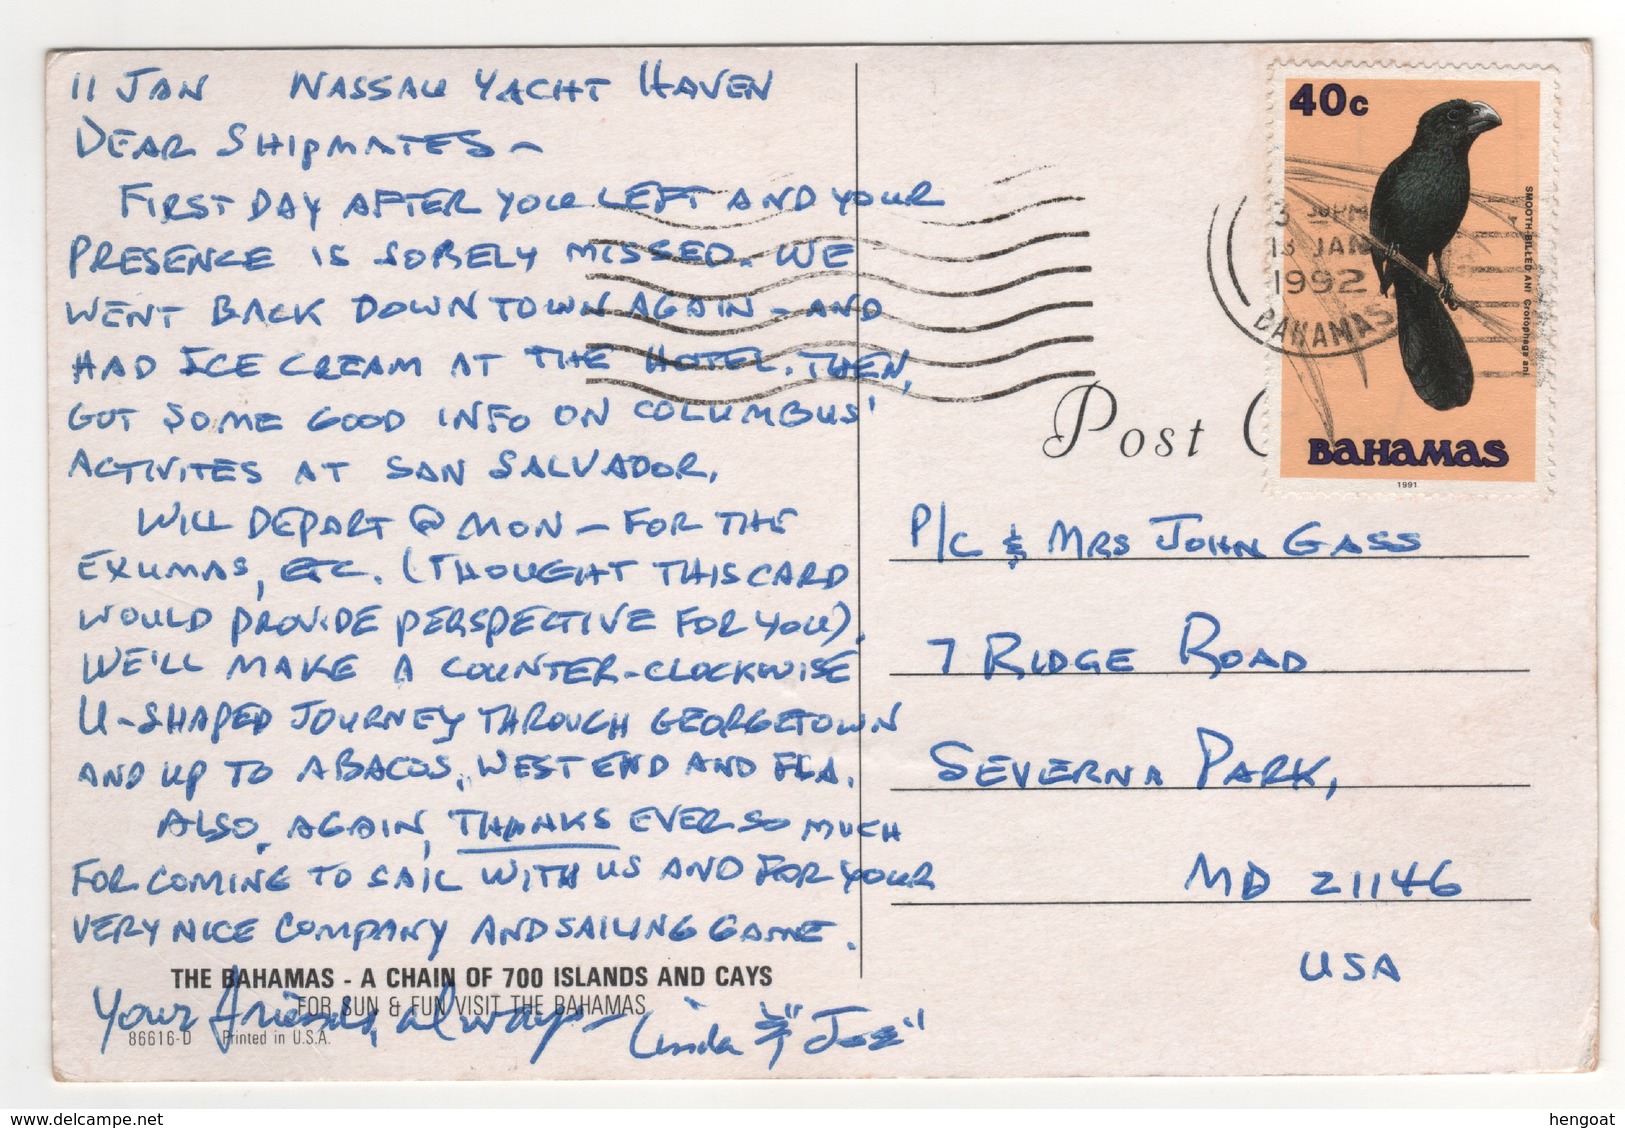 11 JAN NASSAU YACHT HAVEN
DEAR SHIPMATES –
FIRST DAY AFTER YOU LEFT AND YOUR
PRESENCE IS SORELY MISSED. WE
WENT BACK DOWNTOWN AGAIN – AND
HAD ICE CREAM AT THE HOTEL. THEN,
GOT SOME GOOD INFO ON COLUMBUS'
ACTIVITES AT SAN SALVADOR.
WILL DEPART @ MON – FOR THE
EXUMAS, ETC. (THOUGHT THIS CARD
WOULD PROVIDE PERSPECTIVE FOR YOU).
WE'LL MAKE A COUNTER-CLOCKWISE
U-SHAPED JOURNEY THROUGH GEORGETOWN
AND UP TO ABACOS, WEST END AND FLA.
ALSO, AGAIN, THANKS EVER SO MUCH
FOR COMING TO SAIL WITH US AND FOR YOUR
VERY NICE COMPANY AND SAILING GAME.
THE BAHAMAS - A CHAIN OF 700 ISLANDS AND CAYS
FOR SUN & FUN VISIT THE BAHAMAS
Your friends, always –
Linda & "Joe"
86616-D Printed in U.S.A.
Post C
40c
SMOOTH-BILLED ANI Crotophaga ani
BAHAMAS
1991
3 30PM
13 JAN
1992
BAHAMAS
P/C & MRS JOHN GASS
7 RIDGE ROAD
SEVERNA PARK,
MD 21146
USA
hengoat